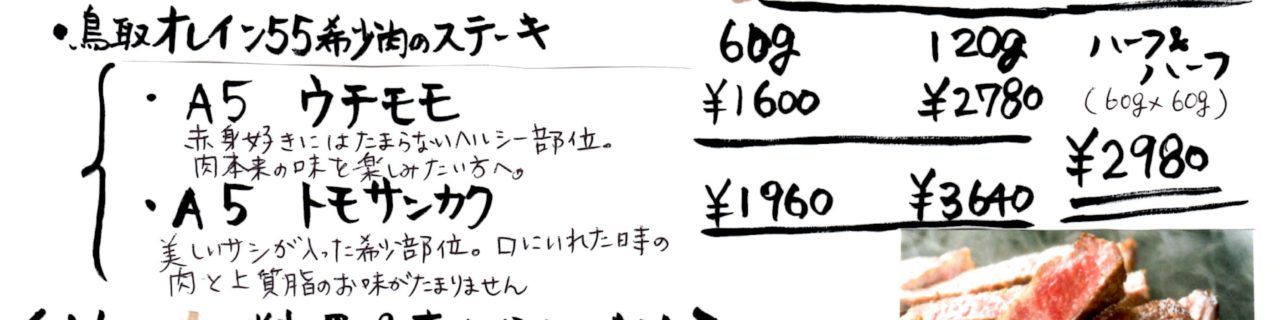 ・鳥取オレイン55希少肉のステーキ
60g 120g ハーフ&ハーフ
(60g×60g)
・A5 ウチモモ ¥1600 ¥2780
赤身好きにはたまらないヘルシー部位。
肉本来の味を楽しみたい方へ。
¥2980
・A5 トモサンカク ¥1960 ¥3640
美しいサシが入った希少部位。口にいれた時の
肉と上質脂のお味がたまりません